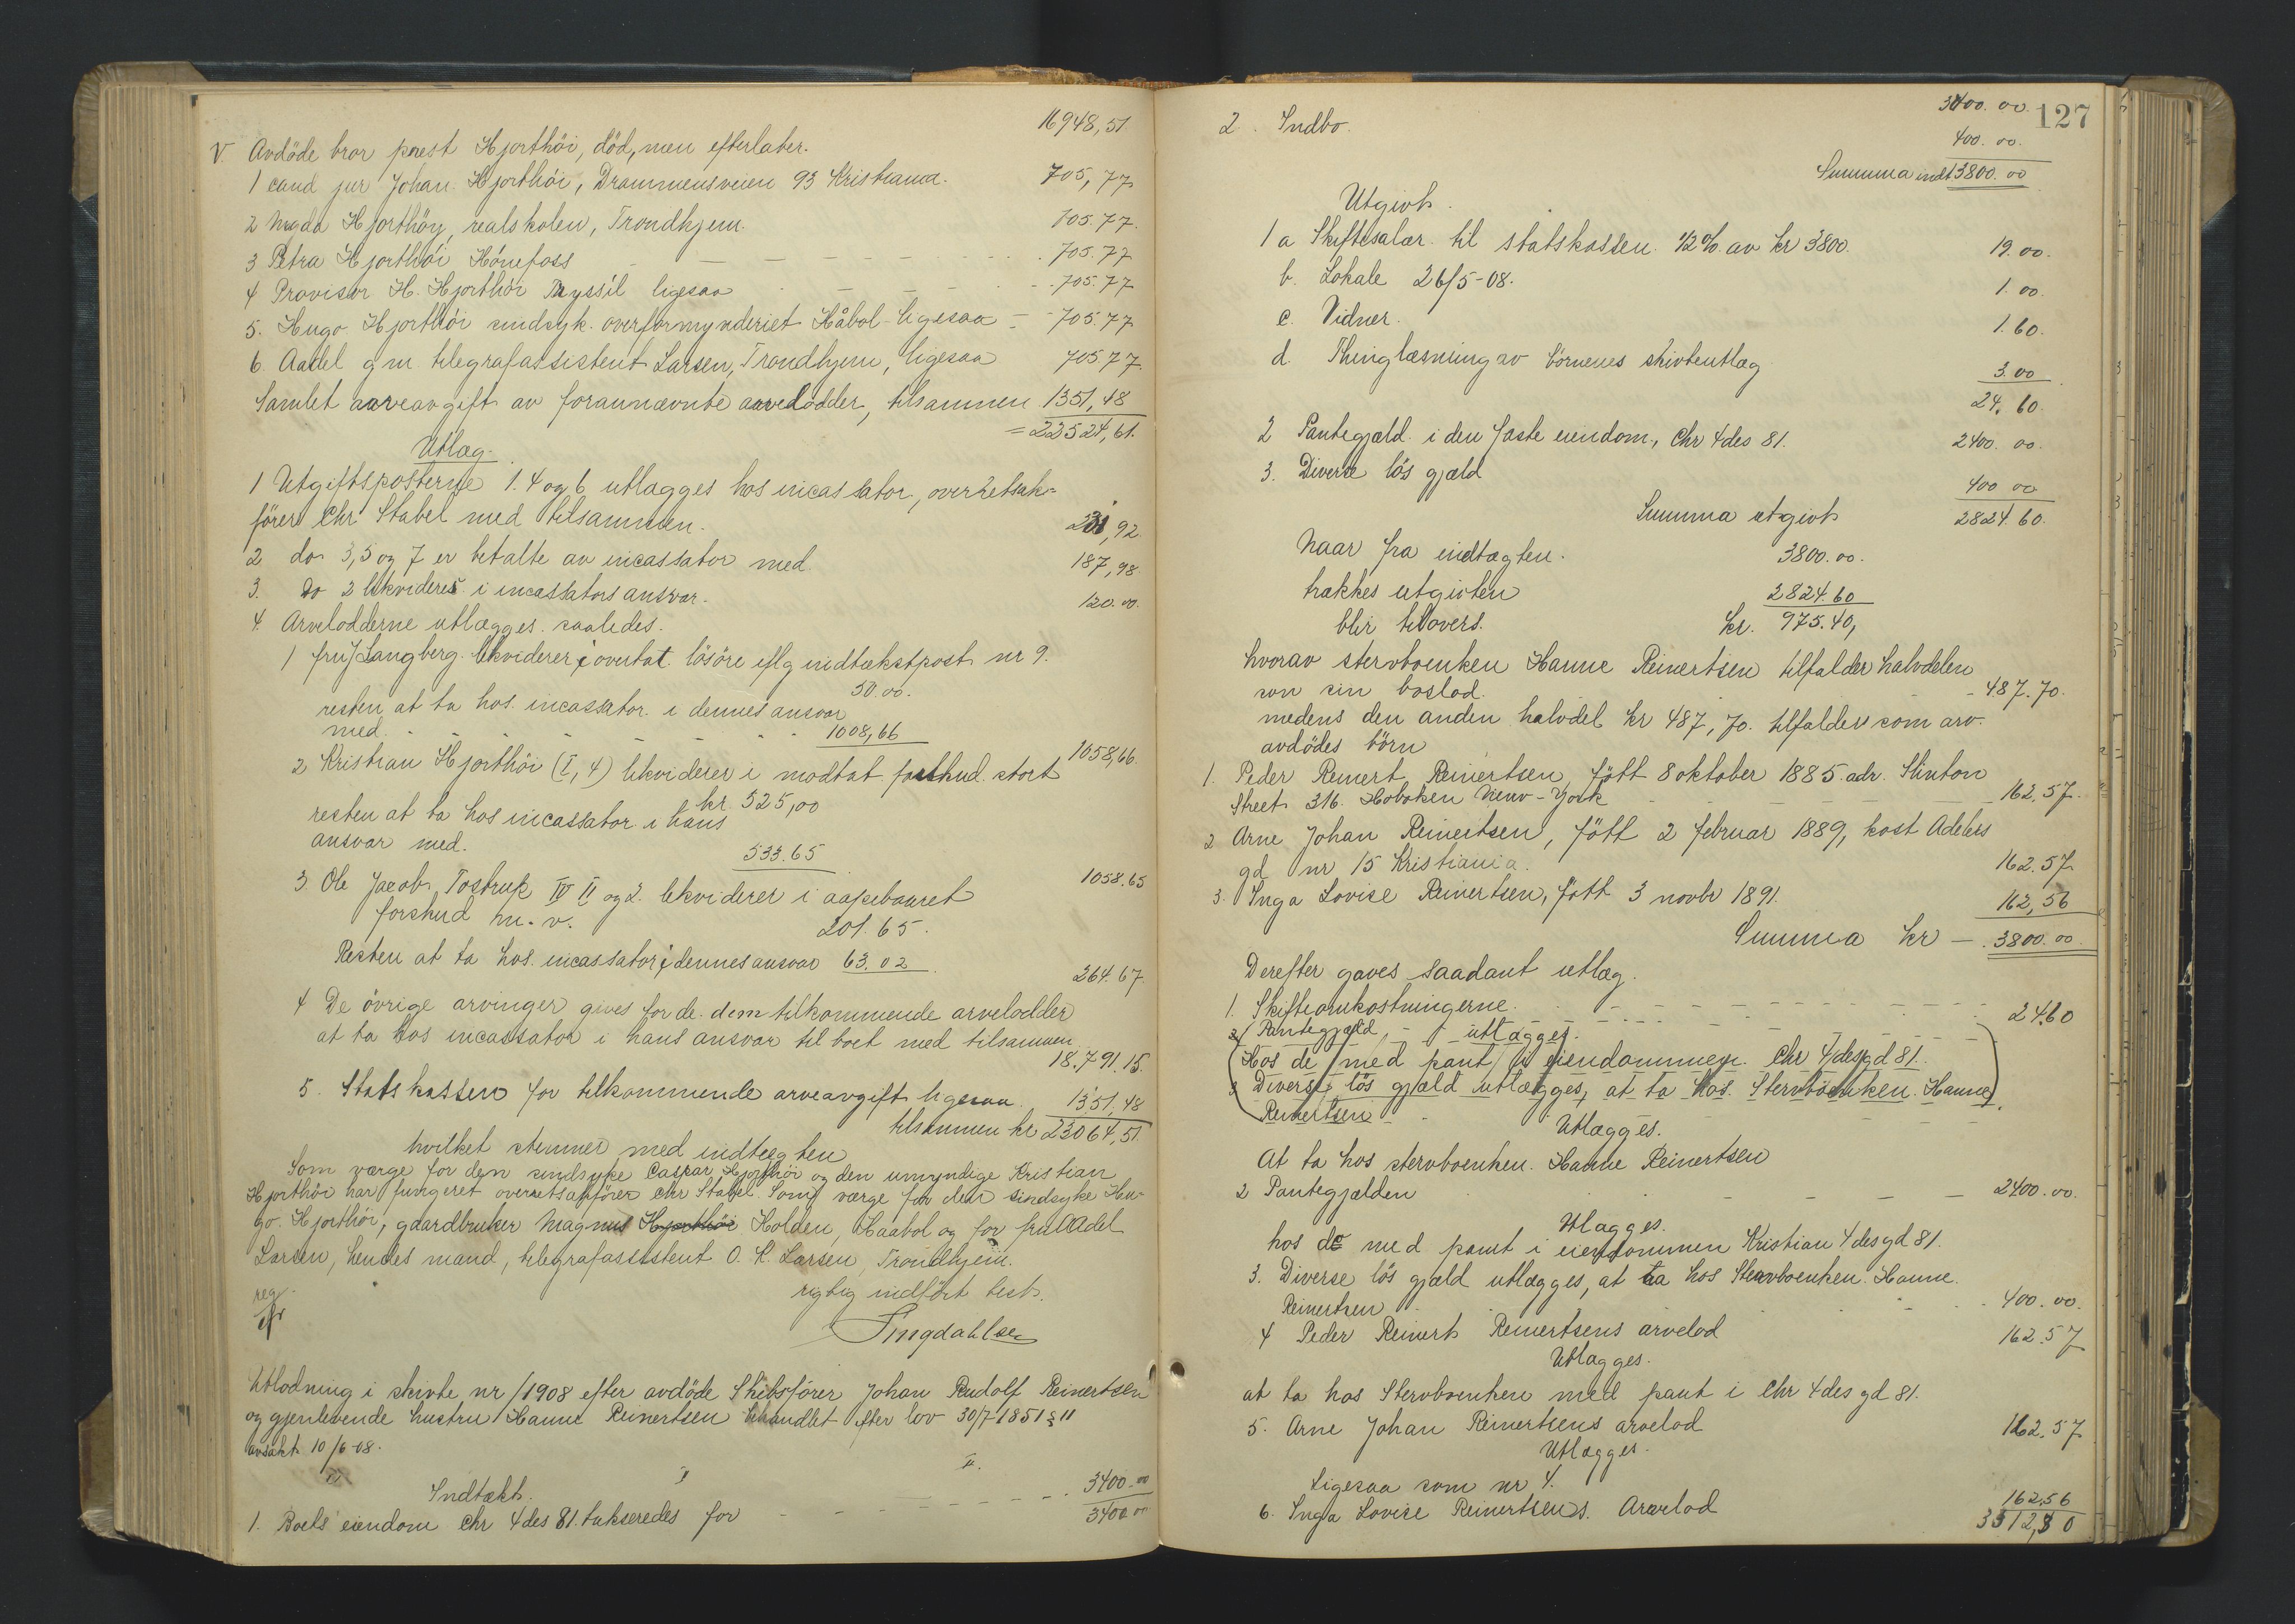 16948,51.
V Avdöde bror prest Hjorthöi, död, men efterlater.
1 cand jur Johan Hjorthöi, Drammensveien 93 Kristiania. 705,77
2 Magda Hjorthöy, realskolen, Trondhjem. 705.77.
3 Petra Hjorthöi Hönefoss - - - - - - - 705.77
4 Provisor H. Hjorthöi ligesaa - - - - 705.77
5. Hugo Hjorthöi sindsyk. overformynderiet Håbol - ligesaa - 705.77
6. Aadel gm telegrafassistent Larsen, Trondhjem, ligesaa 705.77.
Samlet aarveavgift av forannævnte aarvelodder, tilsammen 1351,48
= 22524,61.
Utlæg.
1 Utgiftsposterne 1. 4 og 6 utlægges hos incassator, overretssak-
förer Chr Stabel med tilsammen. ,92
2 do 3,5 og 7 er betalte av incassator med 187,98
3. do 2 likvideres i incassators ansvar. 120.00.
4. Arvelodderne utlægges saaledes.
1 fru Langberg likviderer i overtat lösöre iflg indtækstpost nr 9.
50.00.
resten at ta hos incassator i dennes ansvar
med. - - - - - - 1008,66
1058,66.
2 Kristian Hjorthöi (I, 4) likviderer i modtat forskud stort
kr 525,00
resten at ta hos incassator i hans
ansvar med. 533.65
1058.65
3 Ole Jacob Tostrup IV II og 2. likviderer i
forskud m. v. 201.65.
Resten at ta hos incassator i dennes ansvar 63.02
264.67.
4 De övrige arvinger gives for de dem tilkommende arvelodder
at ta hos incassator i hans ansvar til boet med tilsammen
18.791.15.
5. Statskassen for tilkommende arveavgift ligesaa 1351,48
tilsammen kr 23064,51.
hvilket stemmer med indtægten
Som værge for den sindsyke Caspar Hjorthöi og den umyndige Kristian
Hjorthöi har fungeret overretssakförer Chr Stabel. Som værge for den sindsyke Hu-
go Hjorthöi, gaardbruker Magnus Hjorthöi Holden, Haabol og for fru Aadel
Larsen, hendes mand, telegrafassistent O. K. Larsen, Trondhjem.
reg rigtig indfört test.
Smgdahlsen
Utlodning i skivte nr /1908 efter avdöde Skibsförer Johan Rudolf Reinertsen
og gjenlevende hustru Hanne Reinertsen behandlet efter lov 30/7 1851 § 11
avsakt 10/6-08.
I II.
Indtækt. 3400.00
1. Boets eiendom Chr 4des 81. takseredes for - - 3400.00
127
3400.00.
2. Indbo. 400.00.
Summa indt 3800.00
Utgivt.
1 a Skiftesalær til statskassen 1/2 % av kr 3800. 19.00.
b. Lokale 26/5-08. 1.00.
c. Vidner. 1.60.
d. Thinglæsning av börnenes skivteutlæg 3.00
24.60.
2 Pantegjæld i den faste eiendom, Chr 4des 81. 2400.00.
3. Diverse lös gjæld 400 00
Summa utgivt 2824.60.
Naar fra indtægten. 3800.00.
trækkes utgivten 2824.60
blir tilovers. kr. 975.40,
hvorav stervboenken Hanne Reinertsen tilfalder halvdelen
som sin boslod. - 487.70.
medens den anden halvdel kr 487,70. tilfalder som arv.
avdödes börn
1. Peder Reinert Reinertsen, född 8 oktober 1885. adr. Slinton
Street 316. Hoboken New-York - - - - - 162.57.
2 Arne Johan Reinertsen, född 2 februar 1889, kost Adelers
gd nr 15 Kristiania. 162.57.
3. Inga Lovise Reinertsen, född 3 novbr 1891. 162,56
Summa kr - 3800.00.
Derefter gaves saadant utlæg.
1. Skifteomkostningerne. - - - - - - - - 24.60
2/ Pantegjæld, - - utlægges. - - -
Hos de med pant i eiendommen. Chr 4des gd 81.
3 Diverse lös gjæld utlægges, at ta hos Stervboenken Hanne
Reinertsen - -
Utlægges.
At ta hos stervboenken. Hanne Reinertsen
2 Pantegjælden - - - 2400.00.
Utlægges.
hos de med pant i eiendommen Kristian 4des gd 81.
3. Diverse lös gjæld utlægges, at ta hos Stervboenken Hanne
Reinertsen - 400.00.
4 Peder Reinert Reinertsens arvelod 162.57
Utlægges.
at ta hos Stervboenken med pant i Chr 4des gd 81.
5. Arne Johan Reinertsens arvelod 162.57
Utlægges.
Ligesaa som nr 4.
6. Inga Lovise Reinertsens. Aarvelod 162,56